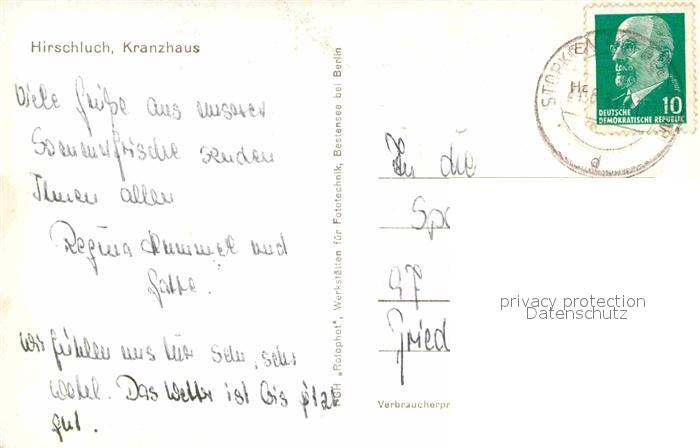 Hirschluch, Kranzhaus
Viele Grüße aus unserer
Sommerfrische senden
Ihnen allen
Regina Hummel und
Gatte.
Wir fühlen uns hier sehr, sehr
wohl. Das Wetter ist bis jetzt
gut.
PGH „Rotophot", Werkstätten für Fototechnik, Bestensee bei Berlin
STORKOW
10
DEUTSCHE
DEMOKRATISCHE REPUBLIK
d
An die
Sp
97
Fried
Verbraucherpr
privacy protection
Datenschutz